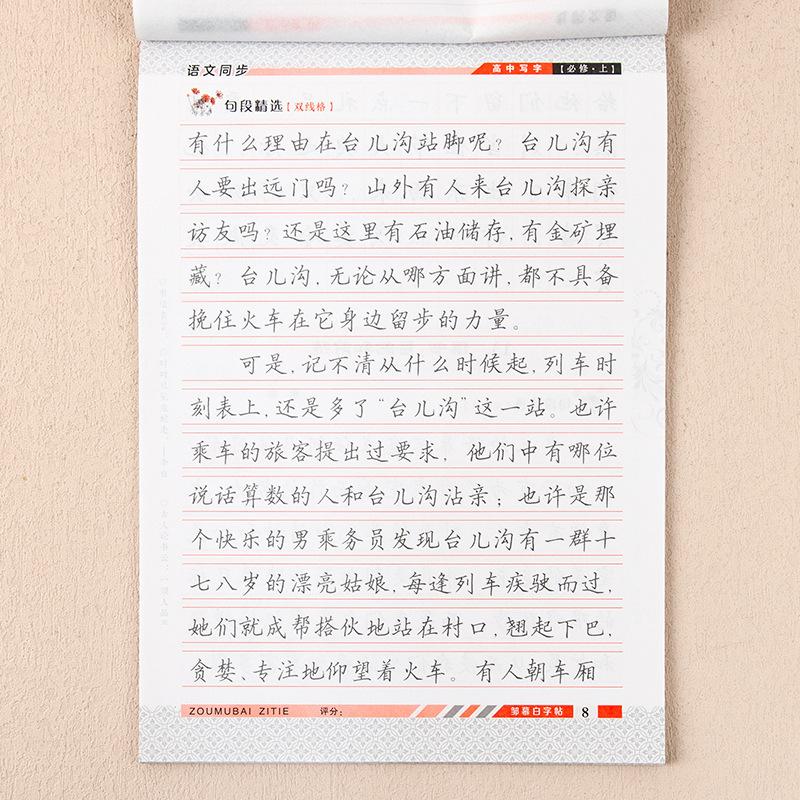 语文同步
高中写字【必修·上】
句段精选【双线格】
有什么理由在台儿沟站脚呢？台儿沟有
人要出远门吗？山外有人来台儿沟探亲
访友吗？还是这里有石油储存，有金矿埋
藏？台儿沟，无论从哪方面讲，都不具备
挽住火车在它身边留步的力量。
可是，记不清从什么时候起，列车时
刻表上，还是多了“台儿沟”这一站。也许
乘车的旅客提出过要求，他们中有哪位
说话算数的人和台儿沟沾亲；也许是那
个快乐的男乘务员发现台儿沟有一群十
七八岁的漂亮姑娘，每逢列车疾驶而过，
她们就成帮搭伙地站在村口，翘起下巴，
贪婪、专注地仰望着火车。有人朝车厢
ZOUMUBAI ZITIE 评分： 邹慕白字帖 8